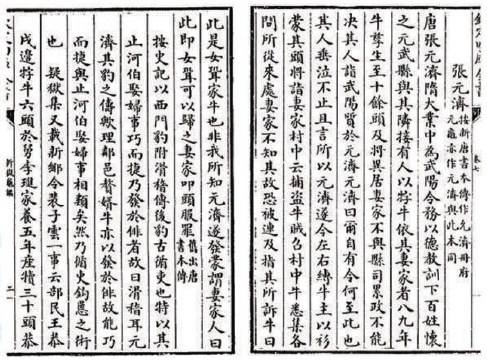 欽定四庫全書
卷七
張元濟 按新唐書本傳作允濟冊府
元龜亦作元濟與此本同
唐張元濟隋大業中為武陽令務以德教訓下百姓懷
之元武縣與其隣接有人以牸牛依其妻家者八九年
牛孳生至十餘頭及將異居妻家不與縣司累政不能
決其人詣武陽質於元濟元濟曰爾自有令何至此也
其人垂泣不止且言所以元濟遂令左右縛牛主以衫
蒙其頭將詣妻家村中云捕盜牛賊召村中牛悉集各
問所從來處妻家不知其故恐被連及指其所訴牛曰
此是女聟家牛也非我所知元濟遂發蒙謂妻家人曰
此即女聟可以歸之妻家叩頭服罪 舊出唐
書本傳
按史記以西門豹附滑稽傳後豹古循吏也特以其
止河伯娶婦事巧而捷乃發於俳者故曰滑稽耳元
濟其豹之儔歟理鄰邑贅婿牛亦以發於俳故能巧
而捷與止河伯娶婦事相類矣然乃循吏鈎慝之術
也 疑獄集又載新鄉令裴子雲一事云部民王恭
戍邊牸牛六頭於舅李璡家養五年産犢三十頭恭
折獄龜鑑
二